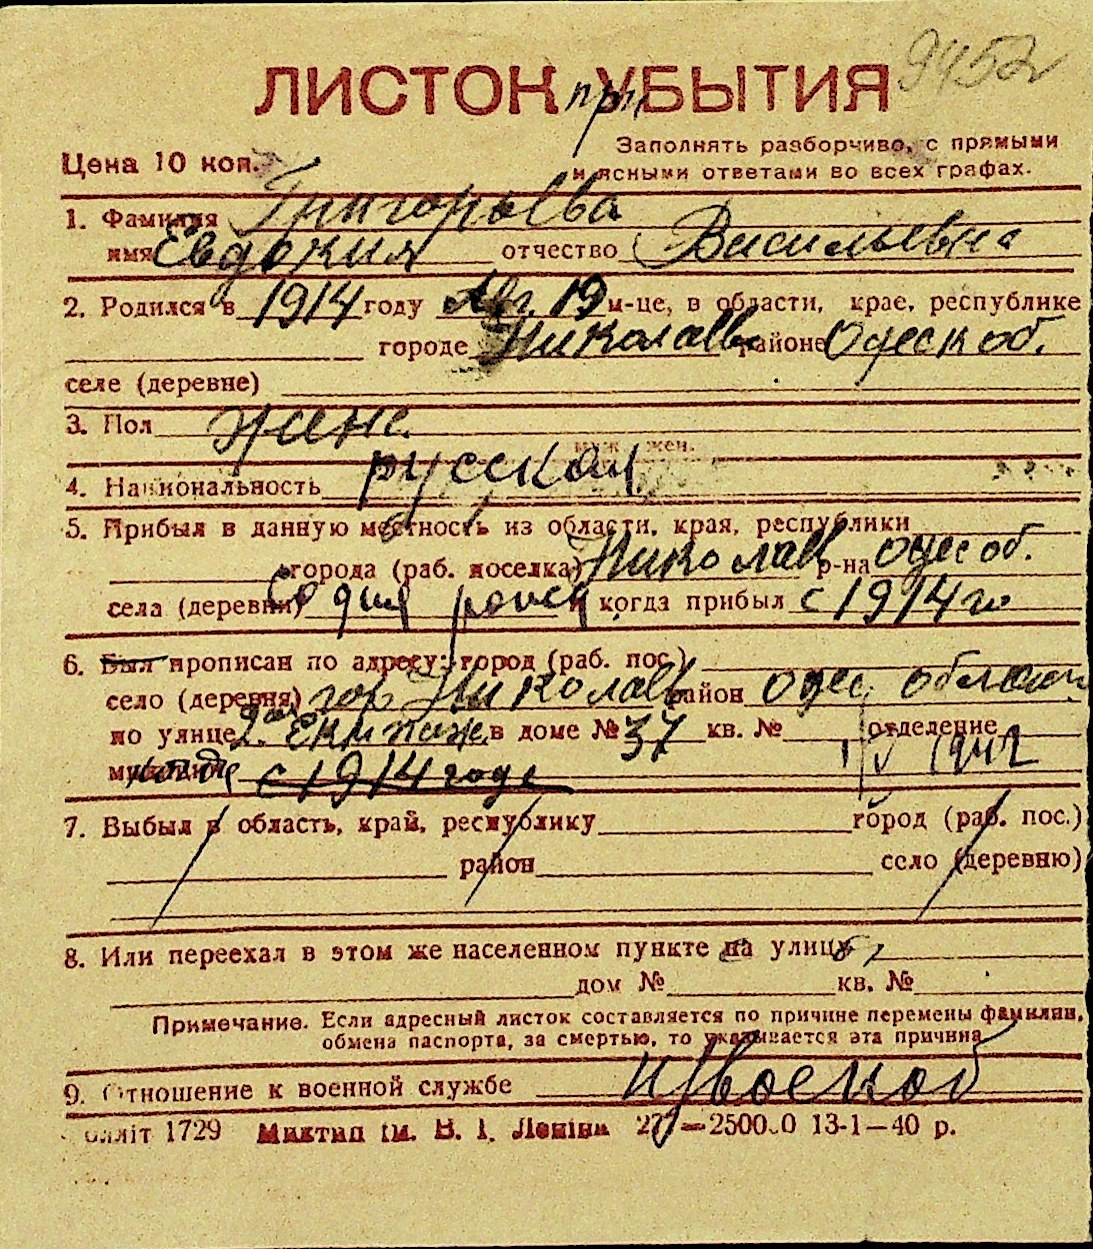 9452
ЛИСТОК при УБЫТИЯ
Цена 10 коп.
Заполнять разборчиво, с прямыми
и ясными ответами во всех графах.
1. Фамилия Григорьева
имя Евдокия отчество Васильевна
2. Родился в 1914 году Авг. 19 м-це, в области, крае, республике
городе Николаев районе Одеск об.
селе (деревне)
3. Пол женс.
муж. жен.
4. Национальность русская
5. Прибыл в данную местность из области, края, республики
города (раб. поселка) Николаев р-на одес об.
села (деревни) со дня рожд и когда прибыл с 1914 го
6. Был прописан по адресу: город (раб. пос.)
село (деревня) гор Николаев район Одес област
по улице 2ая Екипаж. в доме № 37 кв. № отделение
милиции с 1914 года 1942
7. Выбыл в область, край, республику город (раб. пос.)
район село (деревню)
8. Или переехал в этом же населенном пункте на улицу
дом № кв. №
Примечание. Если адресный листок составляется по причине перемены фамилии,
обмена паспорта, за смертью, то указывается эта причина
9. Отношение к военной службе
1729 Миктип ім. В. І. Леніна 13-1—40 р.